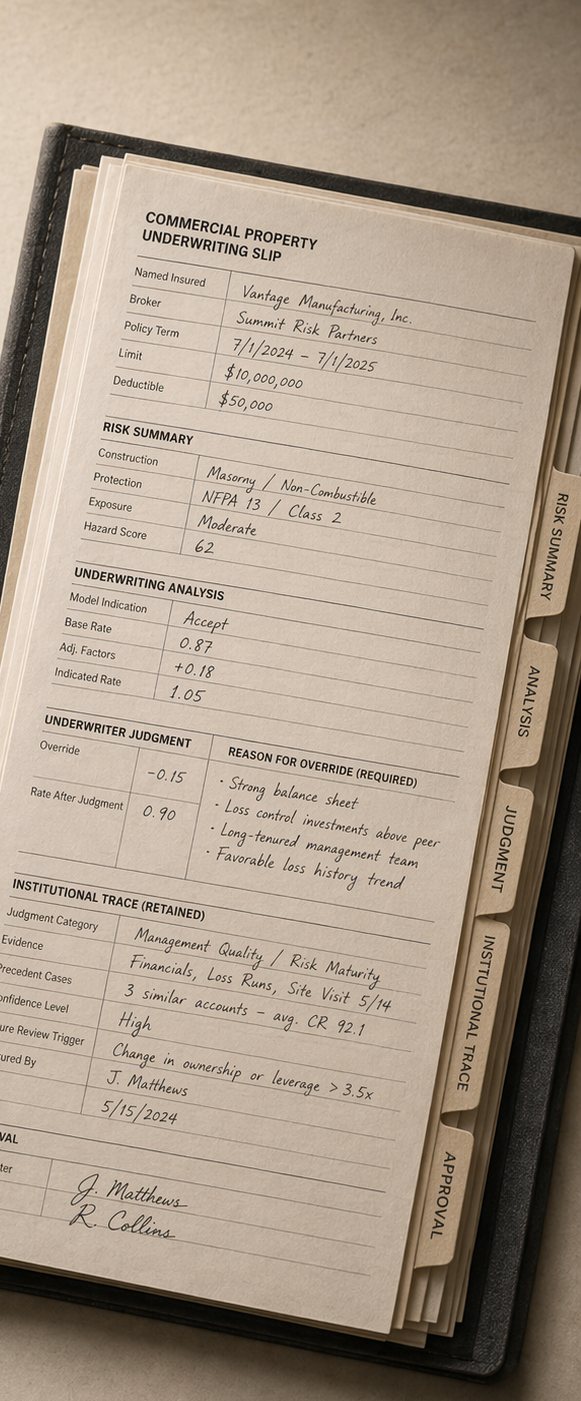 COMMERCIAL PROPERTY
UNDERWRITING SLIP
Named Insured Vantage Manufacturing, Inc.
Broker Summit Risk Partners
Policy Term 7/1/2024 – 7/1/2025
Limit $10,000,000
Deductible $50,000
RISK SUMMARY
Construction Masorny / Non-Combustible
Protection NFPA 13 / Class 2
Exposure Moderate
Hazard Score 62
UNDERWRITING ANALYSIS
Model Indication Accept
Base Rate 0.87
Adj. Factors +0.18
Indicated Rate 1.05
UNDERWRITER JUDGMENT
Override -0.15
Rate After Judgment 0.90
REASON FOR OVERRIDE (REQUIRED)
· Strong balance sheet
· Loss control investments above peer
· Long-tenured management team
· Favorable loss history trend
INSTITUTIONAL TRACE (RETAINED)
Judgment Category Management Quality / Risk Maturity
Evidence Financials, Loss Runs, Site Visit 5/14
Precedent Cases 3 similar accounts – avg. CR 92.1
onfidence Level High
ure Review Trigger Change in ownership or leverage > 3.5x
ured By J. Matthews
5/15/2024
VAL
ter J. Matthews
R. Collins
RISK SUMMARY
ANALYSIS
JUDGMENT
INSTITUTIONAL TRACE
APPROVAL